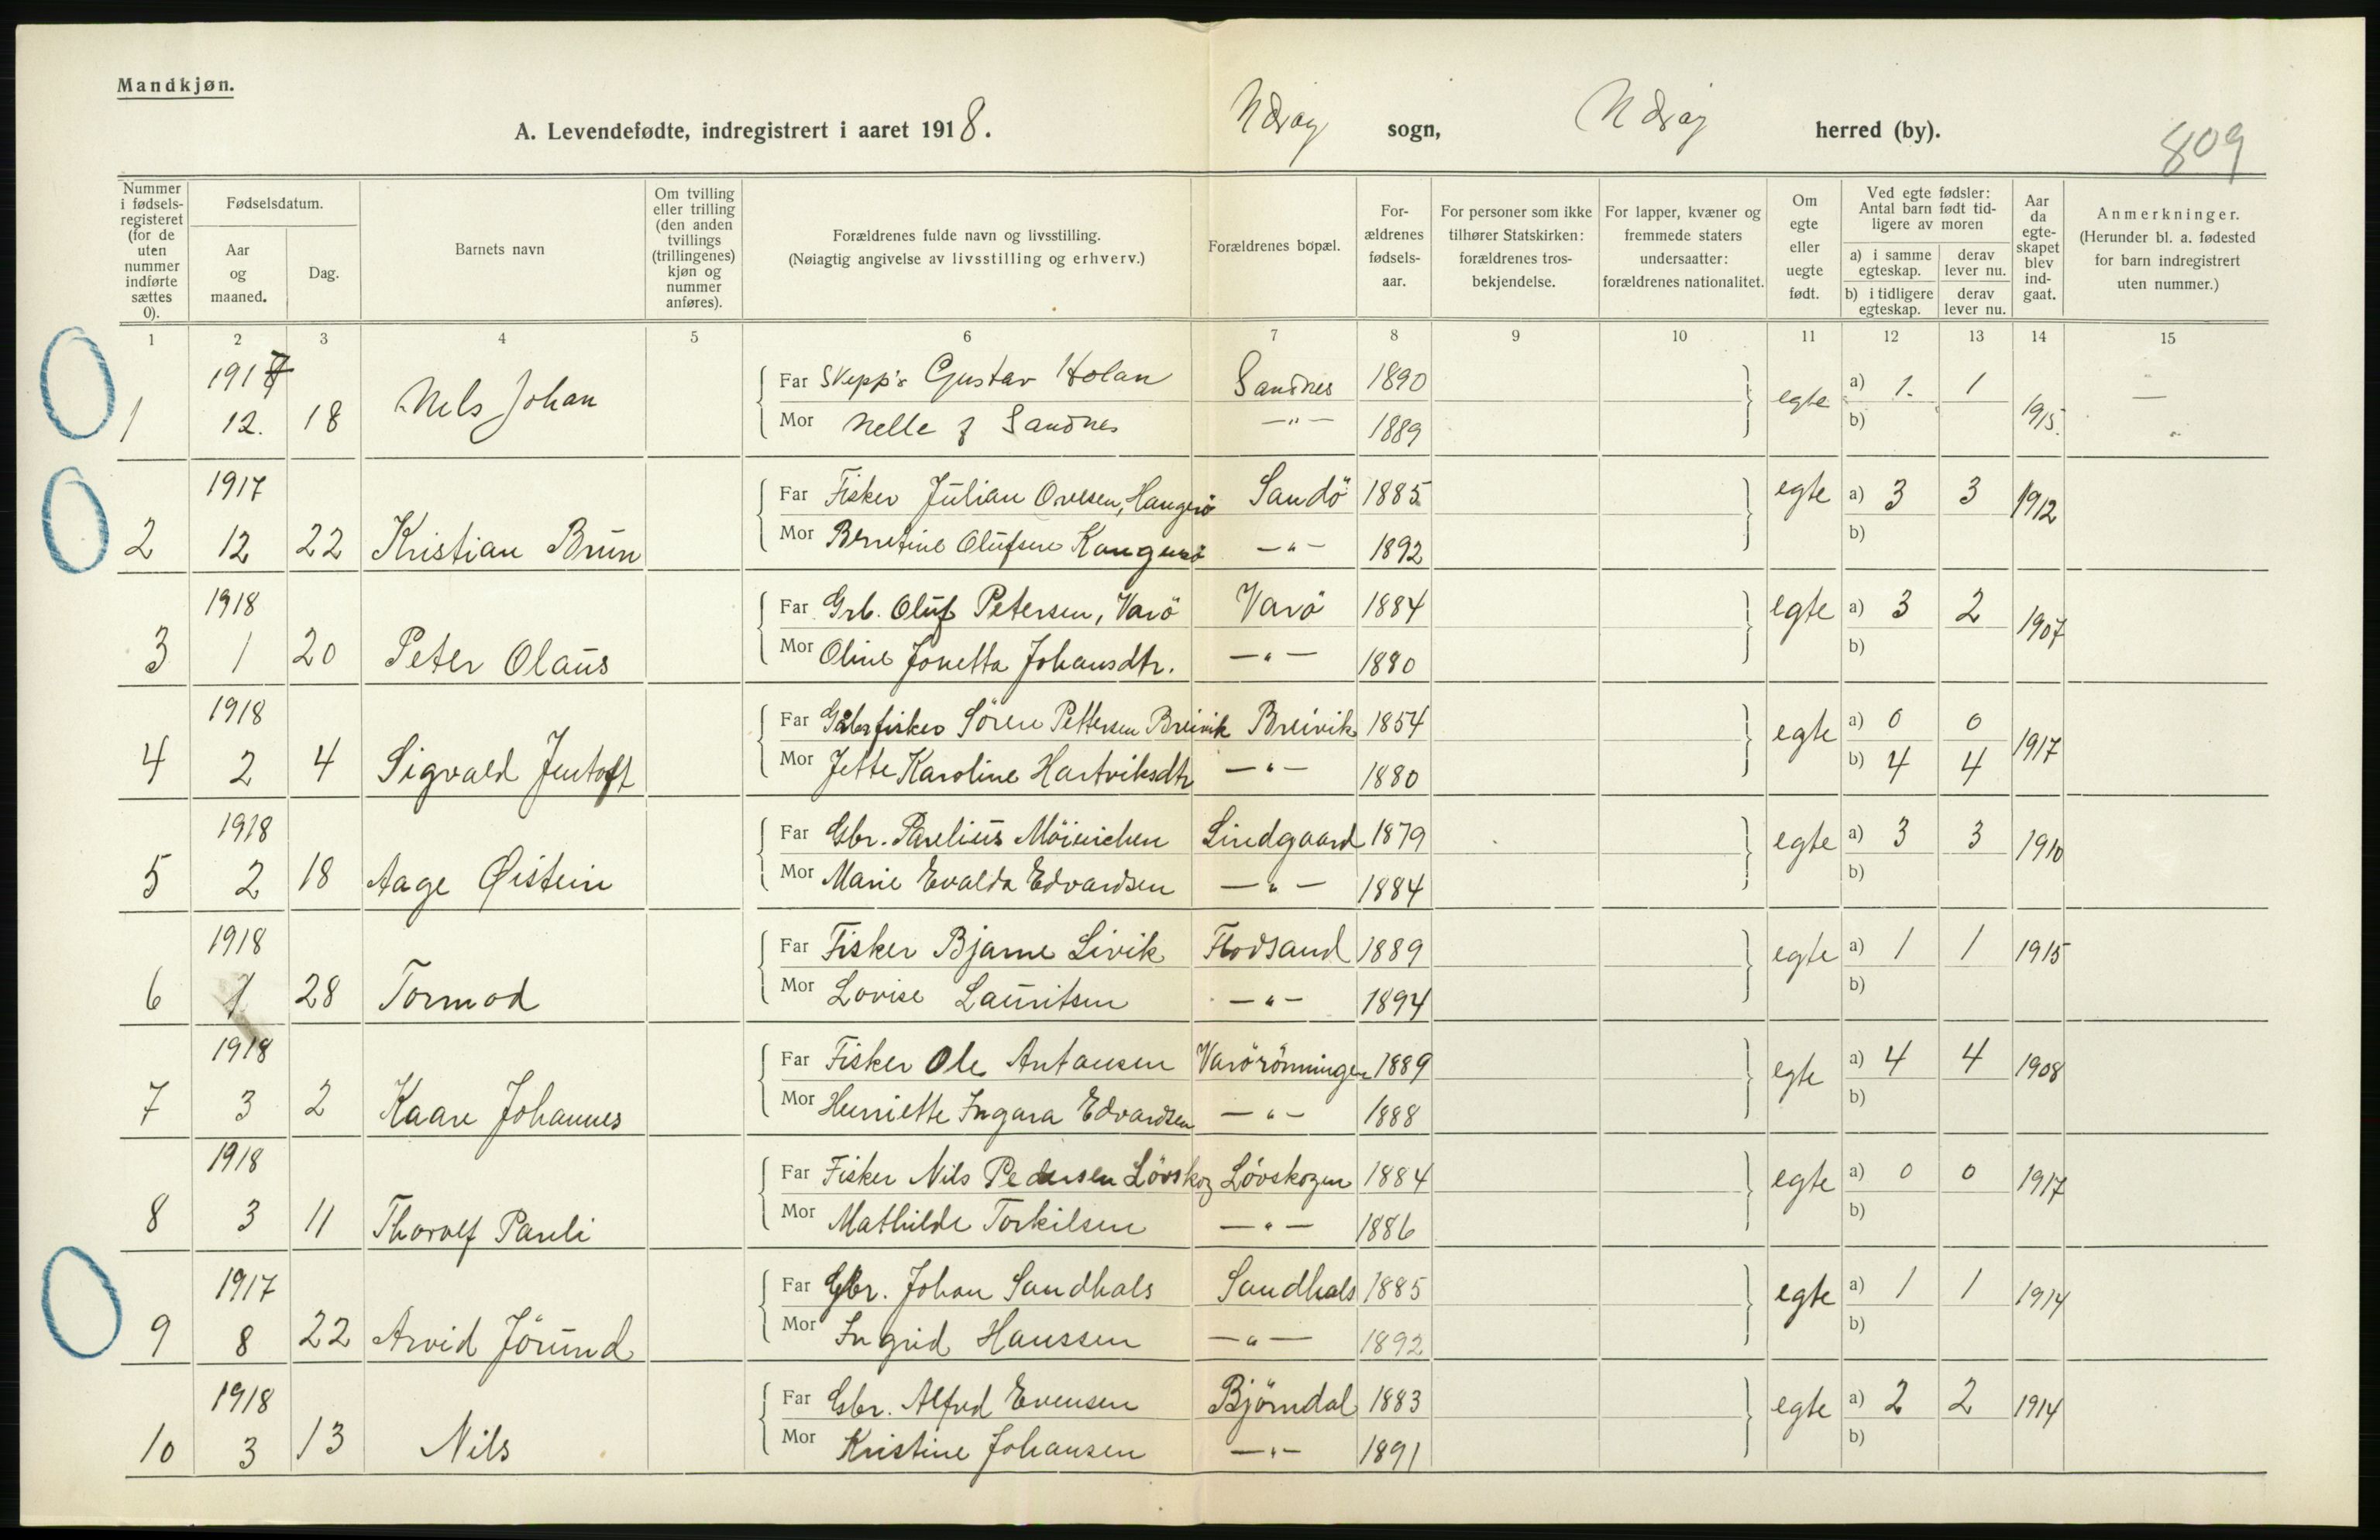 Mandkjøn.
A. Levendefødte, indregistrert i aaret 1918. sogn, herred (by).
809
Nummer i fødselsregisteret (for de uten nummer indførte sættes 0).
Fødselsdatum.
Aar og maaned.
Dag.
Barnets navn
Om tvilling eller trilling (den anden tvillings (trillingenes) kjøn og nummer anføres).
Forældrenes fulde navn og livsstilling.
(Nøiagtig angivelse av livsstilling og erhverv.)
Forældrenes bopæl.
Forældrenes fødselsaar.
For personer som ikke tilhører Statskirken: forældrenes trosbekjendelse.
For lapper, kvæner og fremmede staters undersaatter: forældrenes nationalitet.
Om egte eller uegte født.
Ved egte fødsler: Antal barn født tidligere av moren
a) i samme egteskap.
derav lever nu.
b) i tidligere egteskap.
derav lever nu.
Aar da egteskapet blev indgaat.
Anmerkninger.
(Herunder bl. a. fødested for barn indregistrert uten nummer.)
1 2 3 4 5 6 7 8 9 10 11 12 13 14 15
1917 Far Gustav Holan Sandnes 1890 egte a) 1. 1 1915. —
1 12. 18 Nels Johan Mor Nelle f Sandnes —"— 1889 b)
1917 Far Fisker Julian Ovesen, Sandö 1885 egte a) 3 3 1912
2 12 22 Kristian Brun Mor Berntine Olufsen —"— 1892 b)
1918 Far Grb. Oluf Petersen, Varö Varö 1884 egte a) 3 2 1907
3 1 20 Peter Olaus Mor Oline Jonetta Johansdtr. —"— 1880 b)
1918 Far Sören Pettersen Breivik Breivik 1854 egte a) 0 0 1917
4 2 4 Sigvald Jentoft Mor Jette Karoline Hartviksdtr —"— 1880 b) 4 4
1918 Far Gbr. Parelius Möinichen Lindgaard 1879 egte a) 3 3 1910
5 2 18 Aage Øistein Mor Marie Evalda Edvardsen —"— 1884 b)
1918 Far Fisker Bjarne Livik Flodsand 1889 egte a) 1 1 1915
6 1 28 Tormod Mor Lovise Lauritsen —"— 1894 b)
1918 Far Fisker Ole Antonsen Varörönningen 1889 egte a) 4 4 1908
7 3 2 Kaare Johannes Mor Henriette Ingara Edvardsen —"— 1888 b)
1918 Far Fisker Nils Pedersen Lövskog Lövskogen 1884 egte a) 0 0 1917
8 3 11 Thoralf Pauli Mor Mathilde Torkilsen —"— 1886 b)
1917 Far Gbr. Johan Sandhals Sandhals 1885 egte a) 1 1 1914
9 8 22 Arvid Jörund Mor Ingrid Hanssen —"— 1892 b)
1918 Far Gbr. Alfred Evensen Björndal 1883 egte a) 2 2 1914
10 3 13 Nils Mor Kristine Johansen —"— 1891 b)